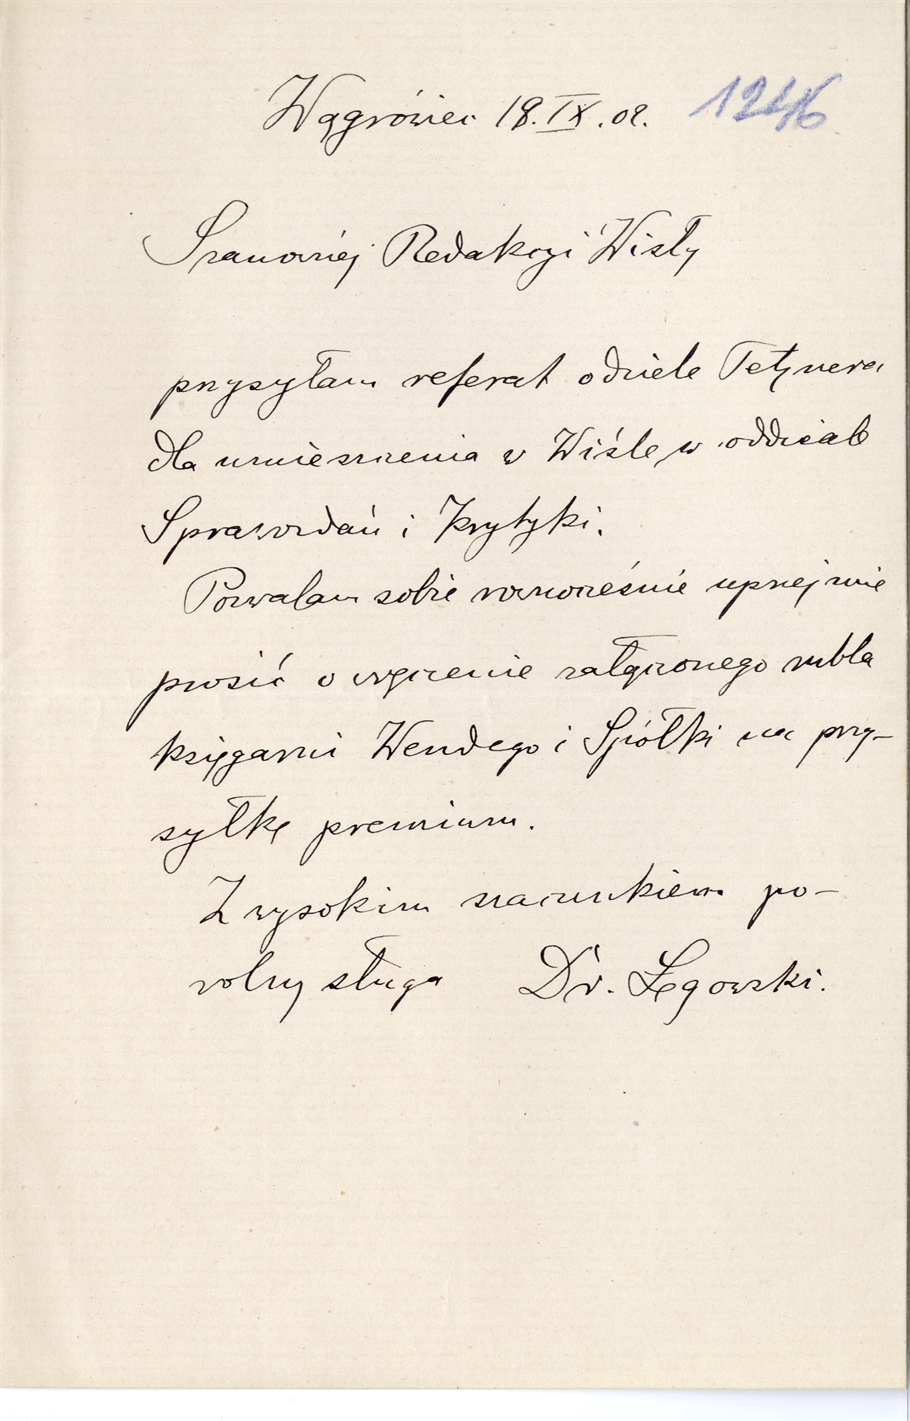 Wągrówiec 18.IX.02. 1246
Szanownej Redakcyi Wisły
przysyłam referat o dziele Tetznera
dla umieszczenia w Wiśle w oddziale
Sprawozdań i Krytyki.
Pozwalam sobie równocześnie uprzejmie
prosić o wręczenie załączonego rubla
księgarni Wendego i Spółki na przy-
syłkę premium.
Z wysokim szacunkiem po-
wolny sługa Dr. Łęgowski.